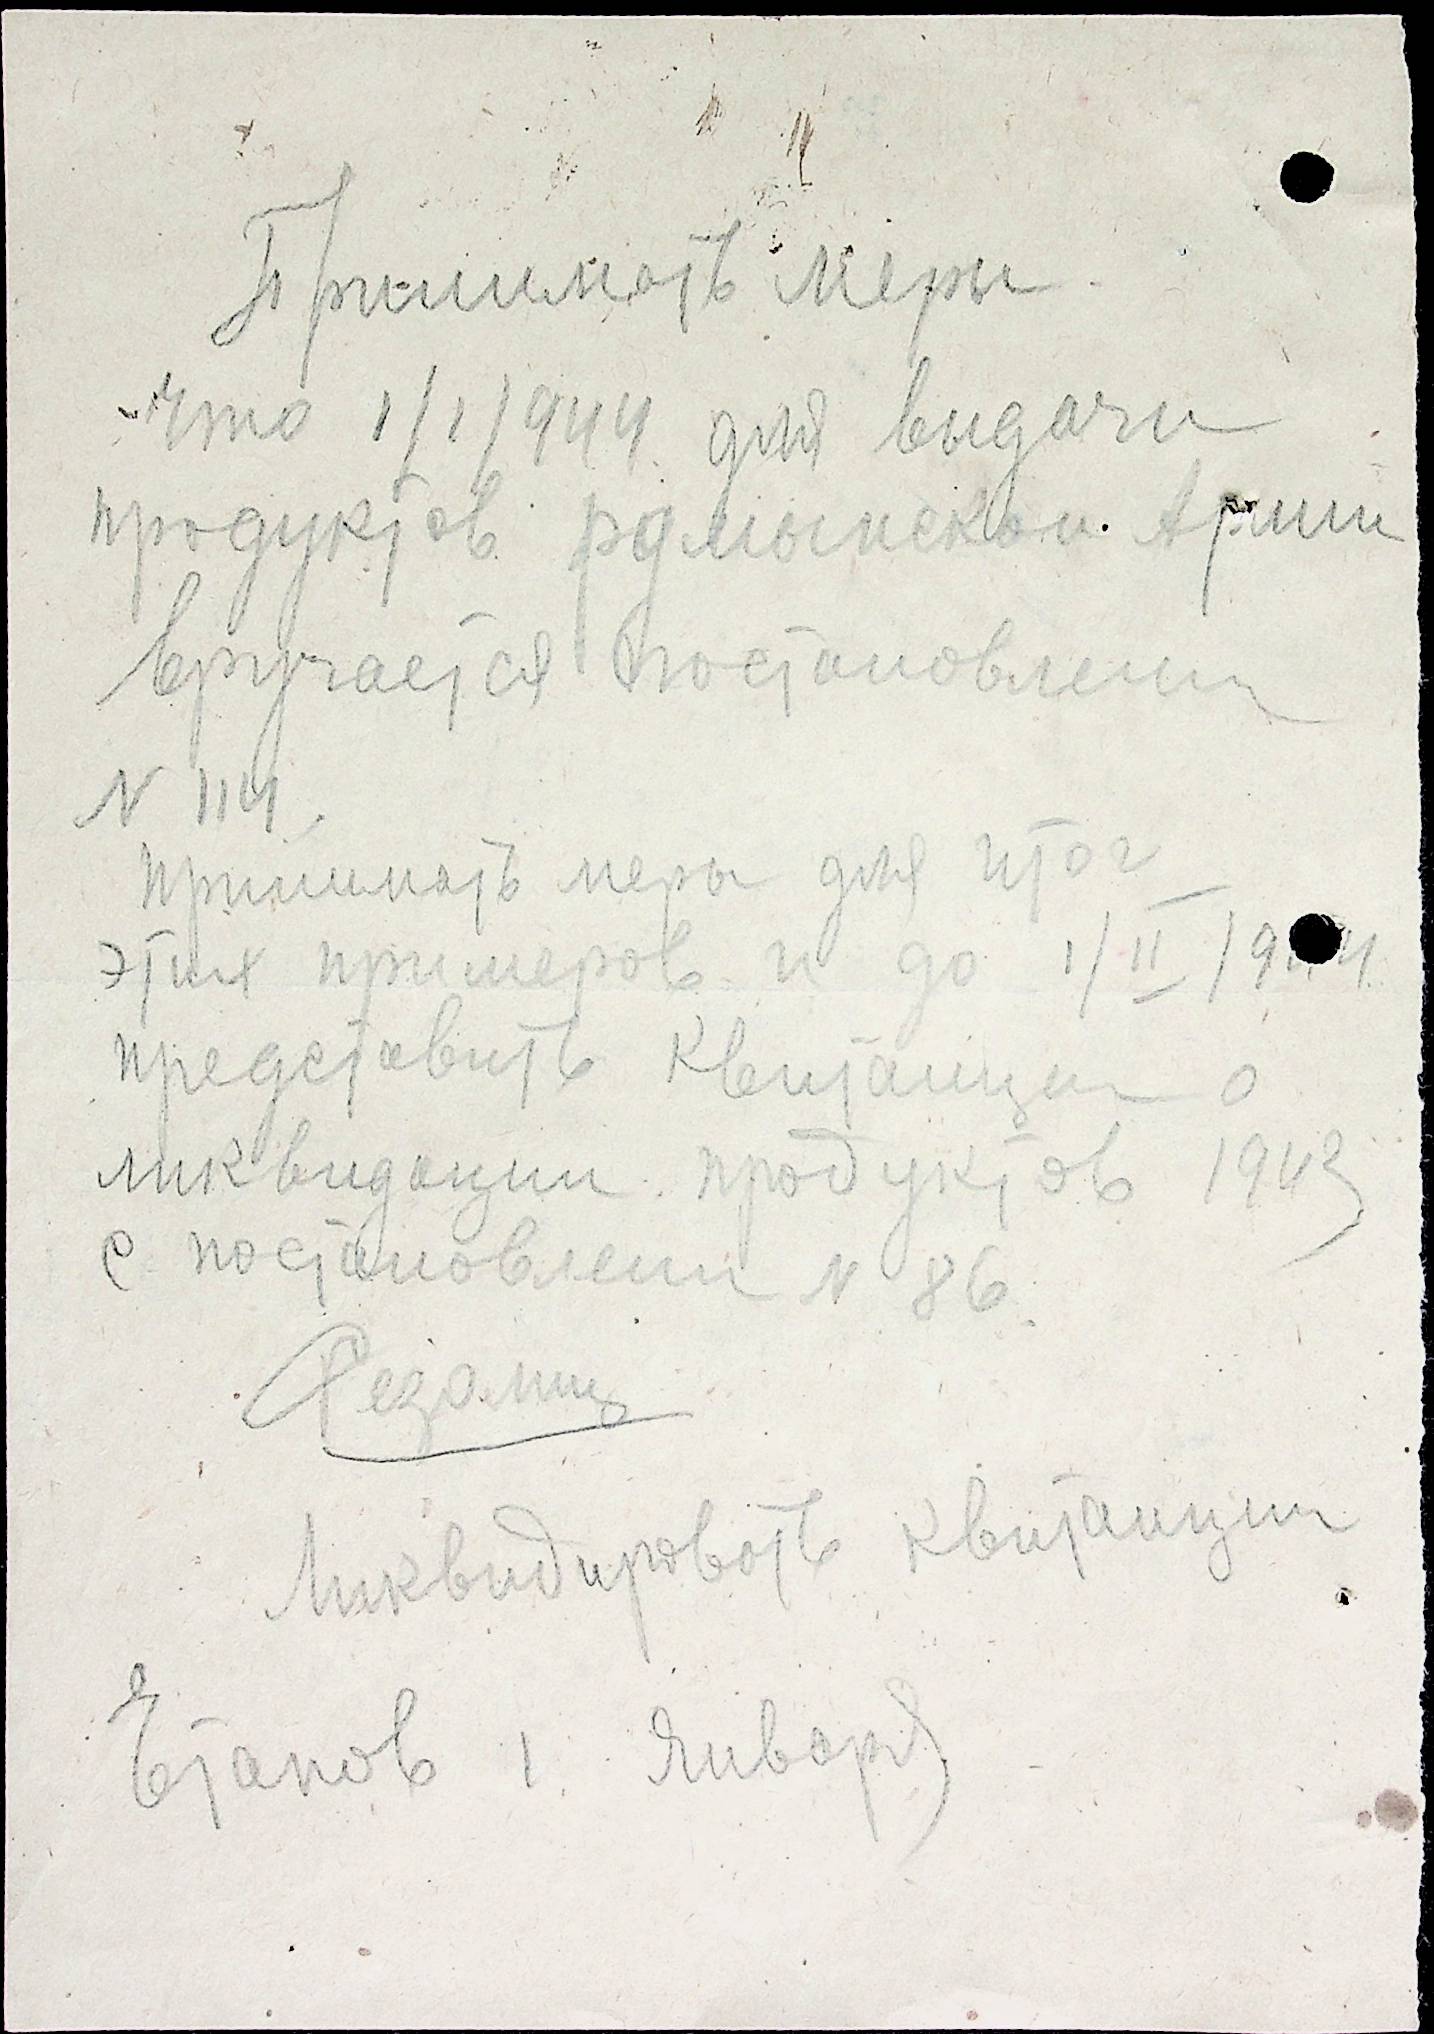 Принимать меры.
что 1/1/944 для видачи
продуктов румынской Армии
вручается постановлени
N 114.
принимать меры для итог
этих примеров и до 1/II/1944
представить квитанции о
ликвидации продуктов 1943
с постановлени N 86.
Ликвидировать квитанции
1 Января